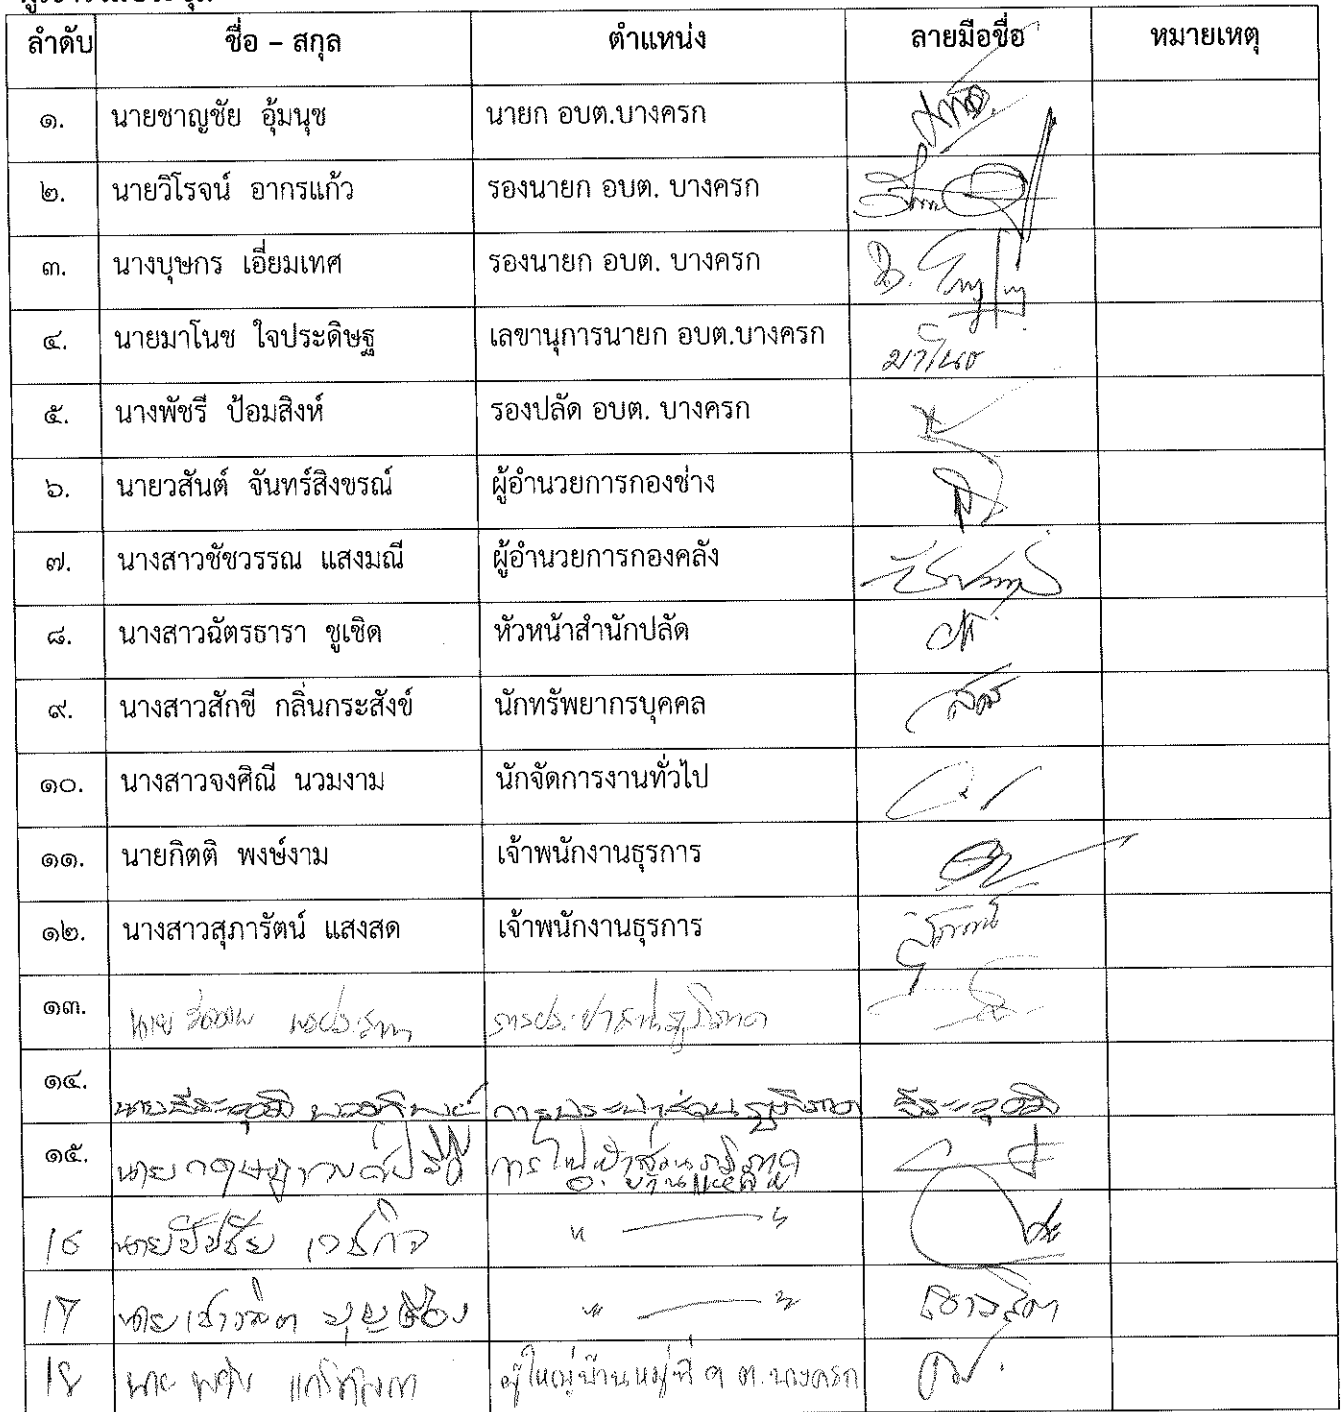 ลำดับ ชื่อ – สกุล ตำแหน่ง ลายมือชื่อ หมายเหตุ
๑. นายชาญชัย อุ้มนุช นายก อบต.บางครก
๒. นายวิโรจน์ อากรแก้ว รองนายก อบต. บางครก
๓. นางบุษกร เอี่ยมเทศ รองนายก อบต. บางครก
๔. นายมาโนช ใจประดิษฐ เลขานุการนายก อบต.บางครก มาโนช
๕. นางพัชรี ป้อมสิงห์ รองปลัด อบต. บางครก
๖. นายวสันต์ จันทร์สิงขรณ์ ผู้อำนวยการกองช่าง
๗. นางสาวชัชวรรณ แสงมณี ผู้อำนวยการกองคลัง
๘. นางสาวฉัตรธารา ชูเชิด หัวหน้าสำนักปลัด
๙. นางสาวสักขี กลิ่นกระสังข์ นักทรัพยากรบุคคล
๑๐. นางสาวจงศิณี นวมงาม นักจัดการงานทั่วไป
๑๑. นายกิตติ พงษ์งาม เจ้าพนักงานธุรการ
๑๒. นางสาวสุภารัตน์ แสงสด เจ้าพนักงานธุรการ
๑๓. นาย การประปาส่วนภูมิภาค
๑๔. นายธีระวุฒิ การประปาส่วนภูมิภาค ธีระวุฒิ
๑๕. นาย การไฟฟ้าส่วนภูมิภาค
อ. บ้านแหลม
16 นาย " "
17 นายเสาวลิต " " เสาวลิต
18 นาย ผู้ใหญ่บ้านหมู่ที่ ๑ ต.บางครก